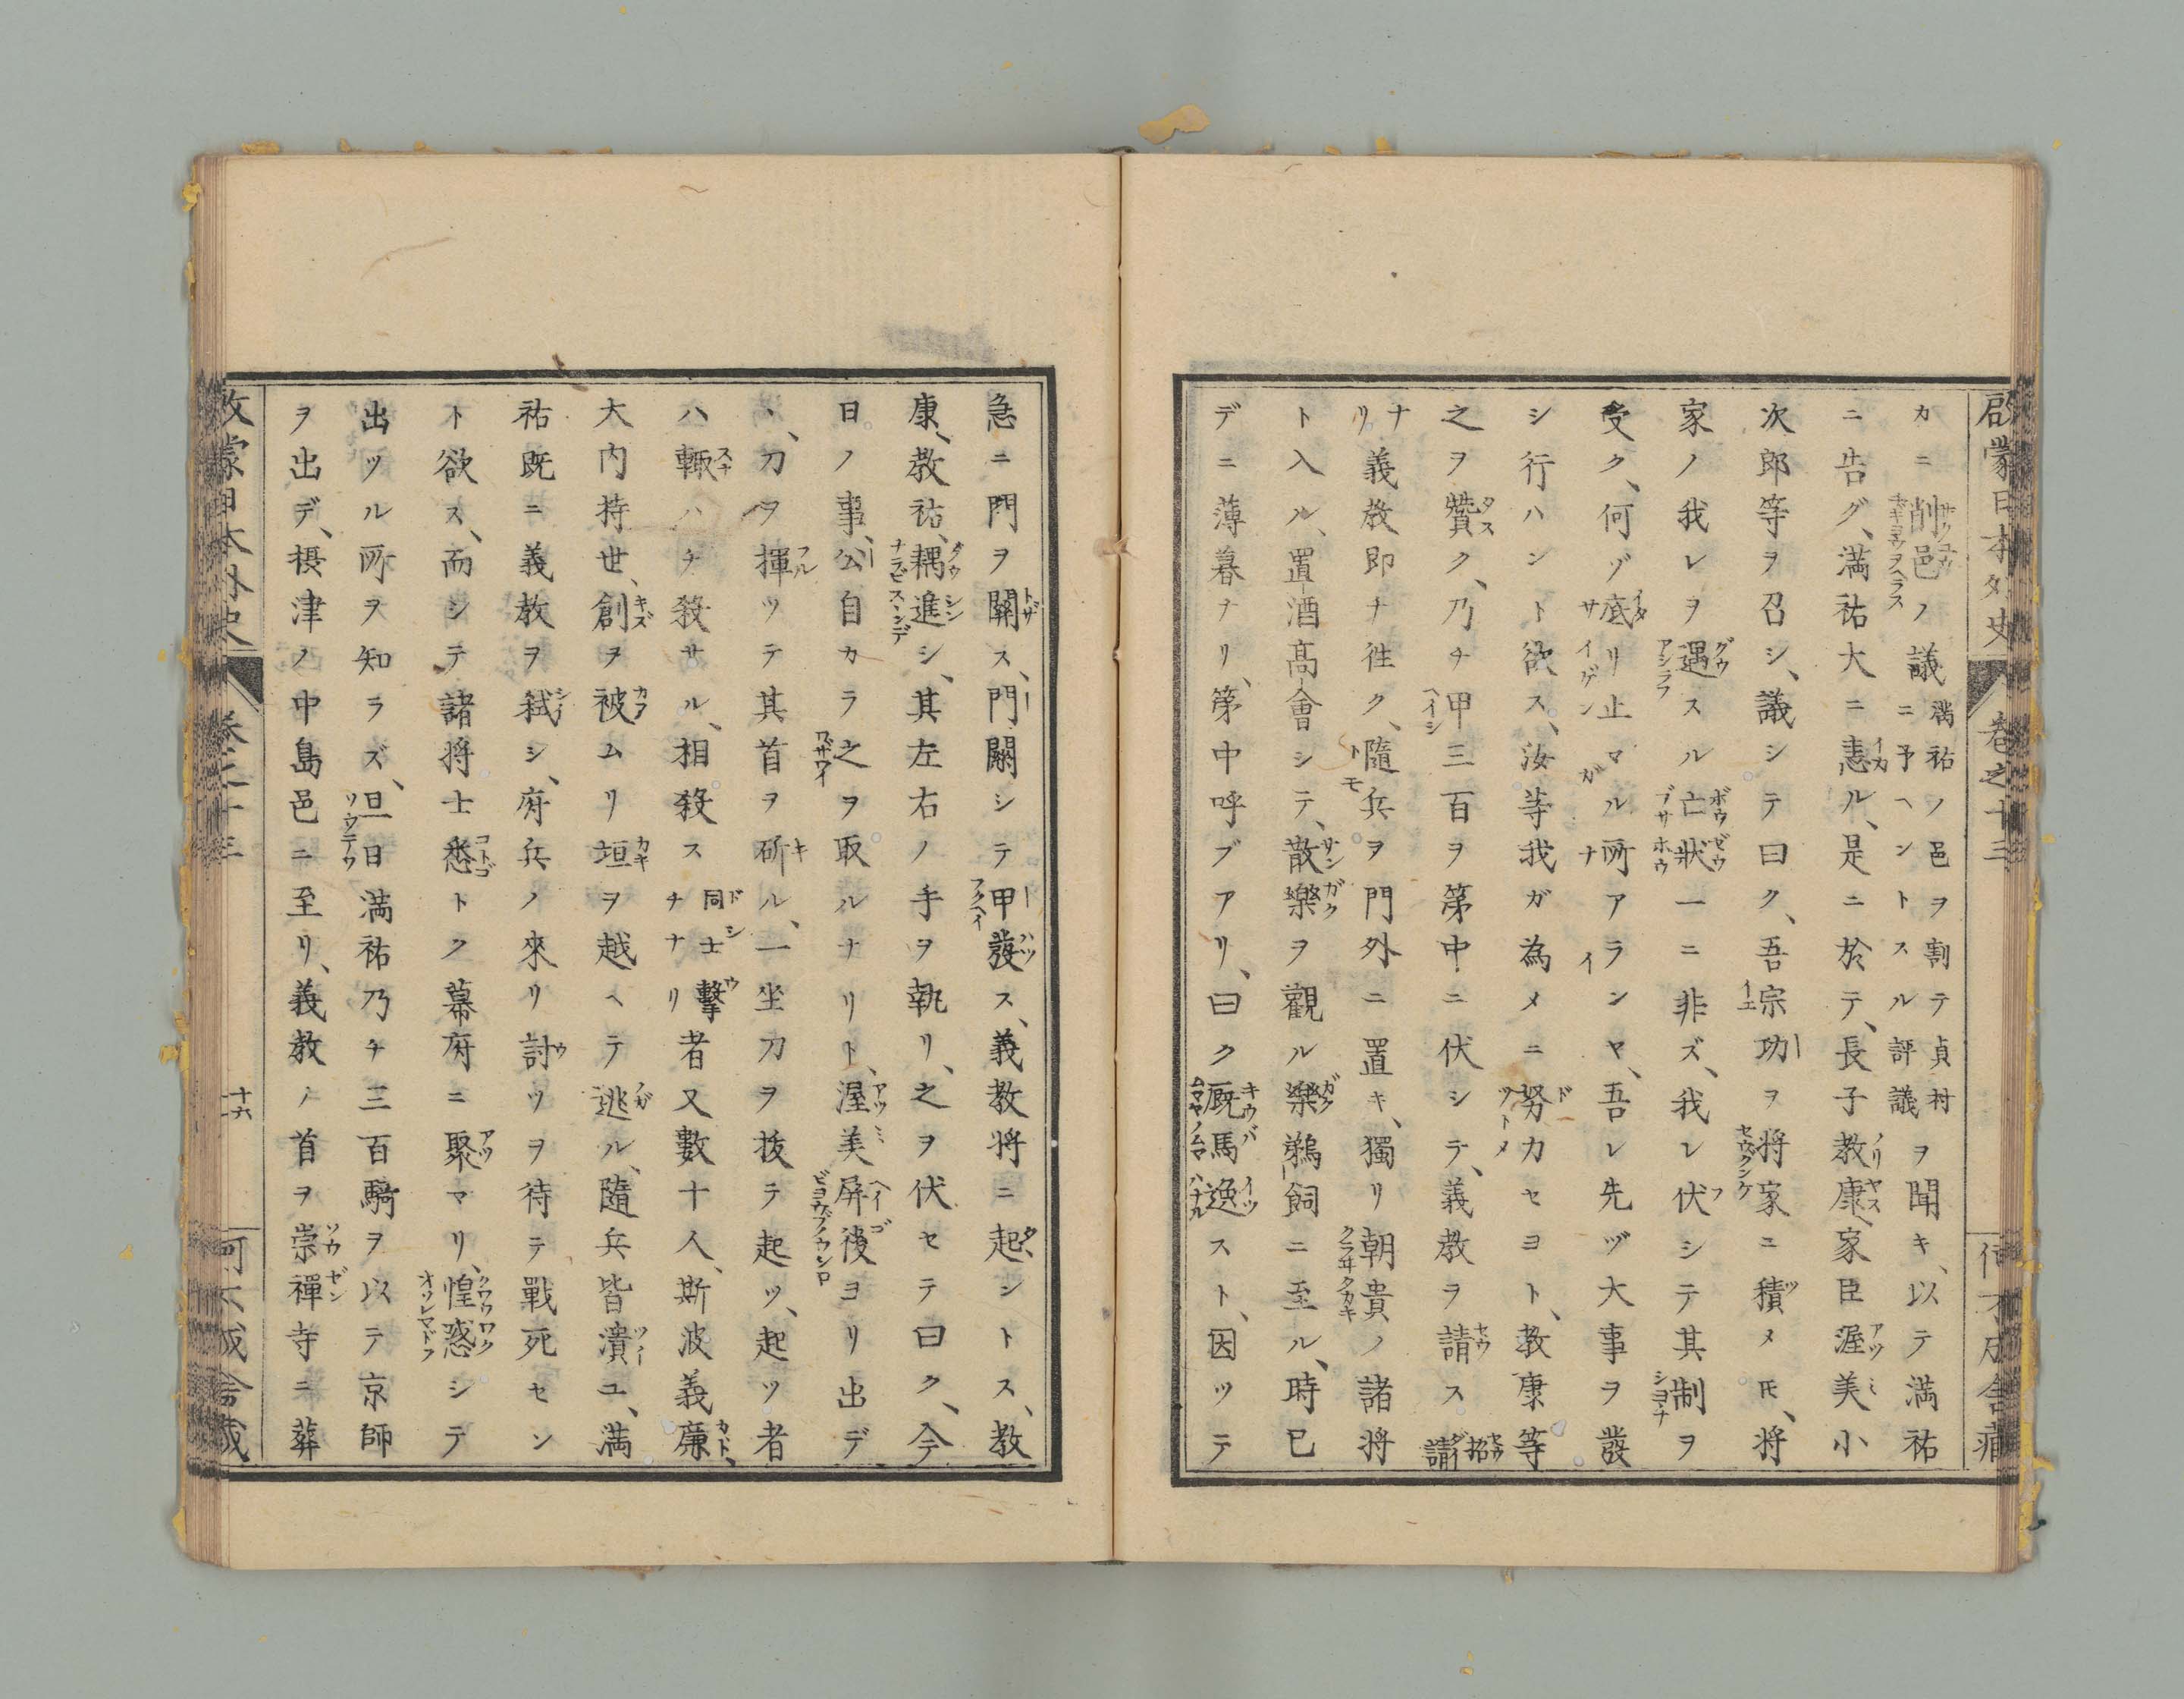 啟蒙日本外史 卷之十三
カニ削邑ノ議満祐ノ邑ヲ割テ貞村ニ予ヘントスル評議ヲ聞キ、以テ満祐
ニ告グ、満祐大ニ恚ル、是ニ於テ、長子教康、家臣渥美小
次郎等ヲ召シ、議シテ曰ク、吾宗功ヲ将家ニ積メ𪜈、将
家ノ我レヲ遇スル亡狀一ニ非ズ、我レ伏シテ其制ヲ
受ク、何ゾ底リ止マル所アランヤ、吾レ先ヅ大事ヲ發
シ行ハント欲ス、汝等我ガ為メニ努力セヨト、教康等
之ヲ贊ク、乃チ甲三百ヲ第中ニ伏シテ、義教ヲ請ス招請
ナリ義教即チ徃ク、隨兵ヲ門外ニ置キ、獨リ朝貴ノ諸将
ト入ル、置酒高會シテ、散樂ヲ觀ル樂鵜飼ニ至ル、時已
デニ薄暮ナリ、第中呼ブアリ、曰ク厩馬逸スト、因ツテ
急ニ門ヲ關ス、門關シテ甲發ス、義教将ニ起ントス、教
康、教祐、耦進シ、其左右ノ手ヲ執リ、之ヲ伏セテ曰ク、今
日ノ事、公自カラ之ヲ取ルナリト、渥美屏後ヨリ出デ
、刀ヲ揮ツテ其首ヲ斫ル、一坐刀ヲ拔テ起ツ、起ツ者
ハ輙ハチ殺サル、相殺ス同士擊チナリ者又數十人、斯波義廉、
大内持世、創ヲ被ムリ垣ヲ越ヘテ逃ル、隨兵皆潰ユ、満
祐既ニ義教ヲ弑シ、府兵ノ來リ討ツヲ待テ戰死セン
ト欲ス、而シテ諸将士悉トク幕府ニ聚マリ、惶惑シテ
出ツル所ヲ知ラズ、旦日満祐乃チ三百騎ヲ以テ京師
ヲ出デ、摂津ノ中島邑ニ至リ、義教ノ首ヲ崇禪寺ニ葬
十六